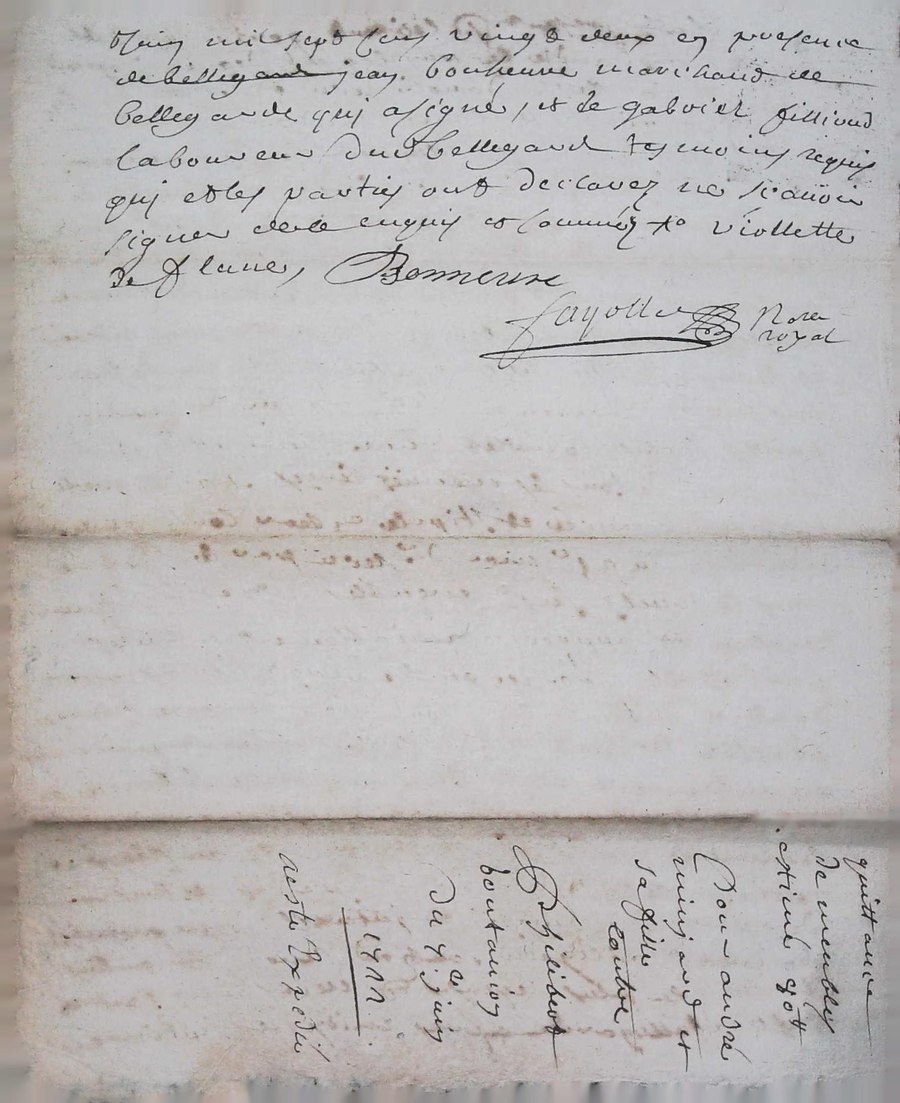 Juin mil sept cens vingt deux en presence
de bellegarde jean bonheure marchand de
bellegarde qui a signé, et de gabriel filliond
laboureur dud bellegarde tesmoins requis
qui et les parties ont declarez ne scauoir
signer de ce enquis et sommés violette
de
Bonneure
fayolle
No.re
royal
quittance
de meubles
estimé 90 tt
Pour andré
minjard et
sa fille
contre
Philibert
fontanion
Du 4e juin
1722
reste Expedié